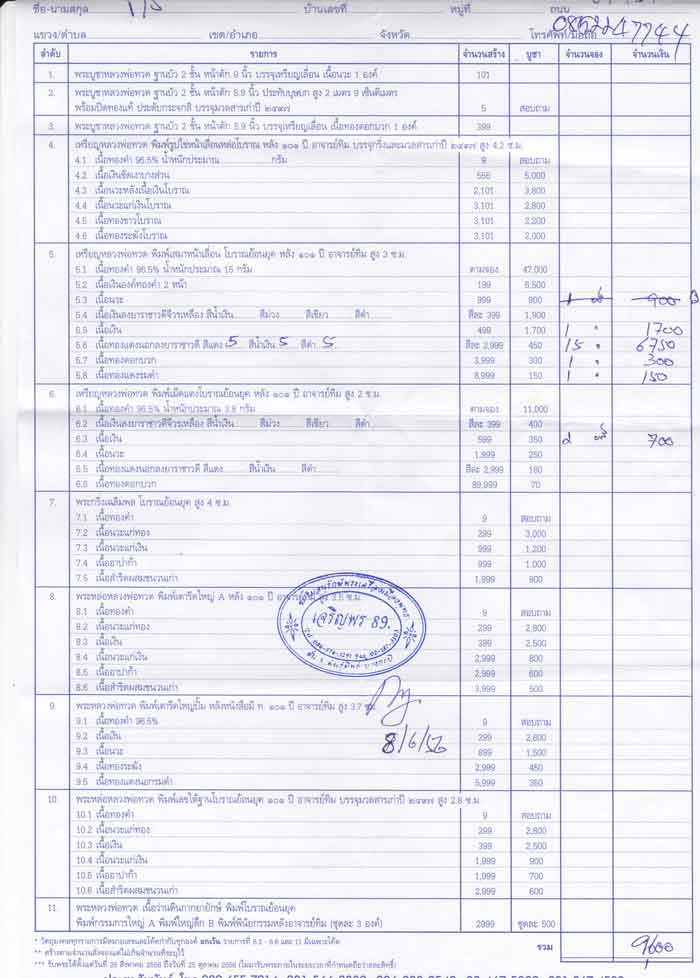 ชื่อ-นามสกุล บ้านเลขที่ หมู่ที่ ถนน
แขวง/ตำบล เขต/อำเภอ จังหวัด โทรศัพท์/มือถือ
ลำดับ รายการ จำนวนสร้าง บูชา จำนวนจอง จำนวนเงิน
1. พระบูชาหลวงพ่อทวด ฐานบัว 2 ชั้น หน้าตัก 9 นิ้ว บรรจุเหรียญเลื่อน เนื้อนวะ 1 องค์ 101
2. พระบูชาหลวงพ่อทวด ฐานบัว 2 ชั้น หน้าตัก 5.9 นิ้ว ประทับบุษบก สูง 2 เมตร 9 เซ็นติเมตร
พร้อมปิดทองแท้ ประดับกระจกสี บรรจุมวลสารเก่าปี ๒๔๙๗ 5 สอบถาม
3. พระบูชาหลวงพ่อทวด ฐานบัว 2 ชั้น หน้าตัก 5.9 นิ้ว บรรจุเหรียญเลื่อน เนื้อทองดอกบวก 1 องค์ 399
4. เหรียญหลวงพ่อทวด พิมพ์รูปไข่หน้าเลื่อนหล่อโบราณ หลัง ๑๐๑ ปี อาจารย์ทิม บรรจุกริ่งและมวลสารเก่าปี ๒๔๙๗ สูง 4.2 ซ.ม.
4.1 เนื้อทองคำ 96.5% น้ำหนักประมาณ กรัม 9 สอบถาม
4.2 เนื้อเงินขัดเงาบางส่วน 555 5,000
4.3 เนื้อนวะหลังเนื้อเงินโบราณ 2,101 3,800
4.4 เนื้อนวะแก่เงินโบราณ 3,101 2,800
4.5 เนื้อทองขาวโบราณ 3,101 2,200
4.6 เนื้อทองระฆังโบราณ 3,101 2,000
5. เหรียญหลวงพ่อทวด พิมพ์เสมาหน้าเลื่อน โบราณย้อนยุค หลัง ๑๐๑ ปี อาจารย์ทิม สูง 3 ซ.ม.
5.1 เนื้อทองคำ 96.5% น้ำหนักประมาณ 15 กรัม ตามจอง 47,000
5.2 เนื้อเงินองค์ทองคำ 2 หน้า 199 6,500
5.3 เนื้อนวะ 999 900 1 900
5.4 เนื้อเงินลงยาราชาวดีจีวรเหลือง สีน้ำเงิน สีม่วง สีเขียว สีดำ สีละ 399 1,900
5.5 เนื้อเงิน 499 1,700 1 " 1700
5.6 เนื้อทองแดงนอกลงยาราชาวดี สีแดง 5 สีน้ำเงิน 5 สีดำ 5 สีละ 2,999 450 15 " 6750
5.7 เนื้อทองดอกบวก 3,999 300 1 " 300
5.8 เนื้อทองแดงรมดำ 8,999 150 1 " 150
6. เหรียญหลวงพ่อทวด พิมพ์เม็ดแตงโบราณย้อนยุค หลัง ๑๐๑ ปี อาจารย์ทิม สูง 2 ซ.ม.
6.1 เนื้อทองคำ 96.5% น้ำหนักประมาณ 3.8 กรัม ตามจอง 11,000
6.2 เนื้อเงินลงยาราชาวดีจีวรเหลือง สีน้ำเงิน สีม่วง สีเขียว สีดำ สีละ 399 400
6.3 เนื้อเงิน 599 350 2 700
6.4 เนื้อนวะ 1,999 250
6.5 เนื้อทองแดงนอกลงยาราชาวดี สีแดง สีน้ำเงิน สีดำ สีละ 2,999 180
6.6 เนื้อทองดอกบวก 89,999 70
7. พระกริ่งเฉลิมพล โบราณย้อนยุค สูง 4 ซ.ม.
7.1 เนื้อทองคำ 9 สอบถาม
7.2 เนื้อนวะแก่ทอง 299 3,000
7.3 เนื้อนวะแก่เงิน 999 1,200
7.4 เนื้ออาปาก้า 999 1,000
7.5 เนื้อสำริดผสมชนวนเก่า 1,999 900
8. พระหล่อหลวงพ่อทวด พิมพ์เตารีดใหญ่ A หลัง ๑๐๑ ปี สูง 3.5 ซ.ม.
8.1 เนื้อทองคำ 9 สอบถาม
8.2 เนื้อนวะแก่ทอง 299 2,800
8.3 เนื้อเงิน 399 2,500
8.4 เนื้อนวะแก่เงิน 2,999 800
8.5 เนื้ออาปาก้า 2,999 600
8.6 เนื้อสำริดผสมชนวนเก่า 3,999 500
เจริญพร 89.
9. พระหล่อหลวงพ่อทวด พิมพ์เตารีดใหญ่ปั๊ม หลังหนังสือมี ท. ๑๐๑ ปี อาจารย์ทิม สูง 3.7 ซ.ม.
9.1 เนื้อทองคำ 96.5% 9 สอบถาม
9.2 เนื้อเงิน 299 2,800
8/6/56
9.3 เนื้อนวะ 899 1,500
9.4 เนื้อทองระฆัง 2,999 450
9.5 เนื้อทองแดงนอกรมดำ 5,999 350
10. พระหล่อหลวงพ่อทวด พิมพ์เลขใต้ฐานโบราณย้อนยุค ๑๐๑ ปี อาจารย์ทิม บรรจุมวลสารเก่าปี ๒๔๙๗ สูง 2.8 ซ.ม.
10.1 เนื้อทองคำ 9 สอบถาม
10.2 เนื้อนวะแก่ทอง 299 2,800
10.3 เนื้อเงิน 399 2,500
10.4 เนื้อนวะแก่เงิน 1,999 900
10.5 เนื้ออาปาก้า 1,999 700
10.6 เนื้อสำริดผสมชนวนเก่า 2,999 600
11. พระหลวงพ่อทวด เนื้อว่านดินกากยายักษ์ พิมพ์โบราณย้อนยุค
พิมพ์กรรมการใหญ่ A พิมพ์ใหญ่ลึก B พิมพ์พินัยกรรมหลังอาจารย์ทิม (ชุดละ 3 องค์) 2999 ชุดละ 500
รวม 9600
* วัตถุมงคลทุกรายการมีหมายเลขและโค้ดกำกับทุกองค์ ยกเว้น รายการที่ 5.2 - 5.6 และ 11 มีเฉพาะโค้ด
** สร้างตามจำนวนสั่งจองแต่ไม่เกินจำนวนที่ระบุไว้